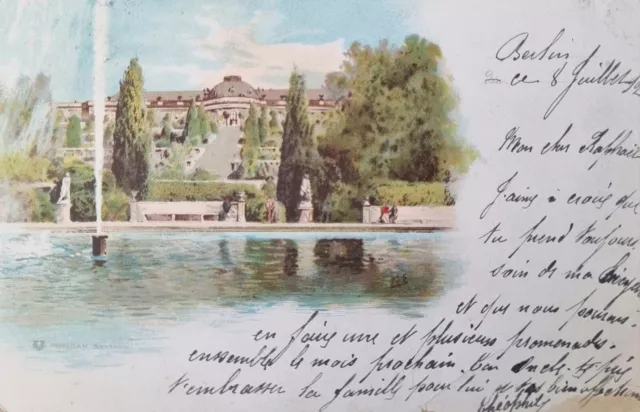 Berlin
ce 8 Juillet
Mon cher Raphaël
J'aime à croire que
tu prend toujours
soin de ma
et que nous pourrons
en faire une et plusieurs promenades
ensembles le mois prochain. Ton Oncle te prie
d'embrasser ta famille pour lui
Théophile